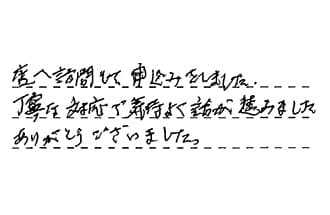 店へ訪問して申込みをしました.
丁寧な対応で気持よく話が進みました
ありがとうございました。